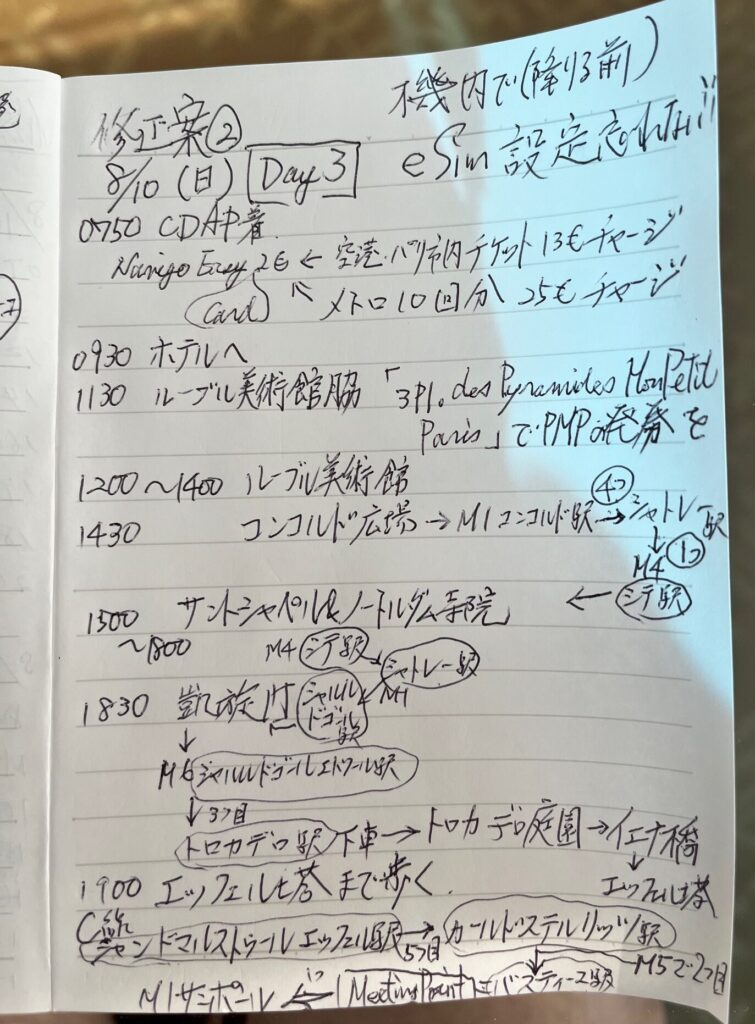 機内で(降りる前)
修正案②
eSim 設定忘れない!!
8/10 (日) Day 3
0750 CDAP着
Navigo Easy 2€ ← 空港・パリ市内チケット 13€チャージ
Card ← メトロ10回分 25€ チャージ
0930 ホテルへ
1130 ルーブル美術館脇「3Pl. des Pyramides MonPetit
Paris」でPMPの発券を
1200〜1400 ルーブル美術館
1430 コンコルド広場 → M1 コンコルド駅 →④コ シャトレー駅
↓
M4 ①コ
1500 サントシャペル&ノートルダム寺院 ← シテ駅
〜1800 M4 シテ駅 → シャトレー駅
M1
1830 凱旋門 ← シャルルドゴール駅
↓
M6 シャルルドゴールエトワール駅
↓3つ目
トロカデロ駅 下車 → トロカデロ庭園 → イエナ橋
↓
1900 エッフェル塔まで歩く エッフェル塔
C線
シャンドマルストゥールエッフェル駅 →5つ目 ガールドステルリッツ駅
M5で2つ目
M1サンポール ← Meeting Point バスティーユ駅